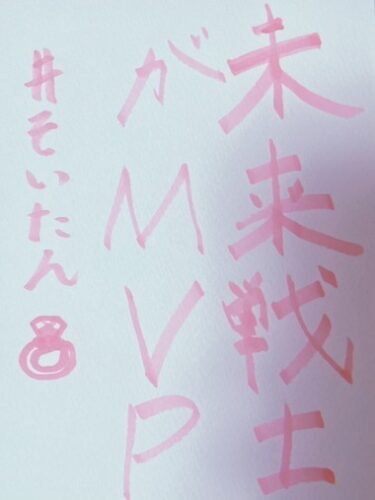 未来戦士
がMVP
#そいたん